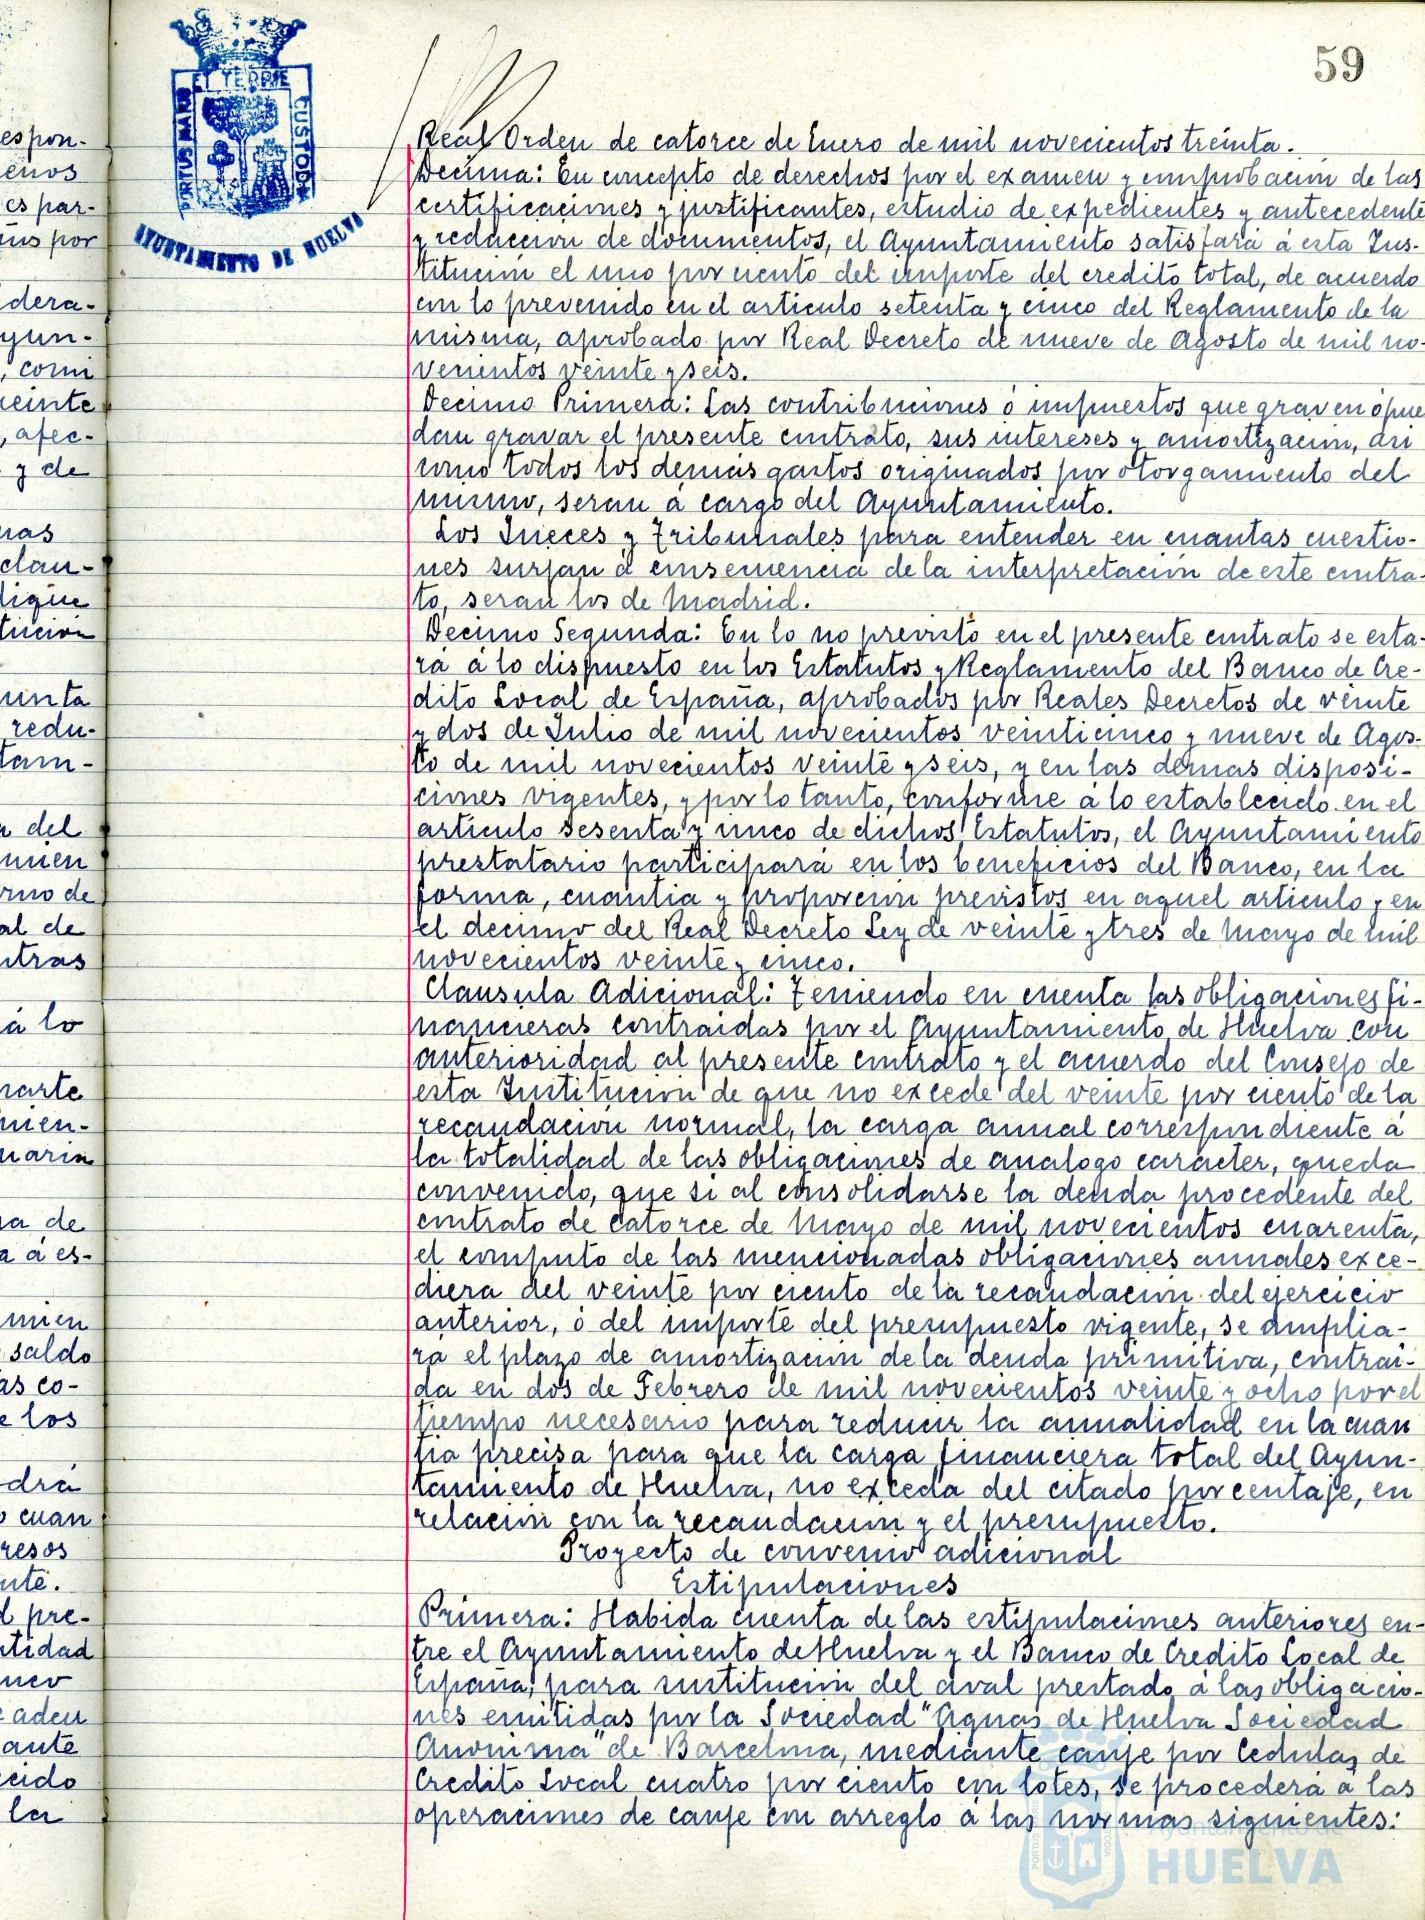 59
PORTUS MARIS ET TERRE CUSTODIA
AYUNTAMIENTO DE HUELVA
Real Orden de catorce de Enero de mil novecientos treinta.
Decima: En concepto de derechos por el examen y comprobación de las
certificaciones y justificantes, estudio de expedientes y antecedente
y redaccion de documentos, el Ayuntamiento satisfará á esta Ins-
titución el uno por ciento del importe del credito total, de acuerdo
con lo prevenido en el articulo setenta y cinco del Reglamento de la
misma, aprobado por Real Decreto de nueve de Agosto de mil no-
vecientos veinte y seis.
Decimo Primera: Las contribuciones ó impuestos que graven ó pue
dan gravar el presente contrato, sus intereses y amortización, asi
como todos los demás gastos originados por otorgamiento del
mismo, seran á cargo del Ayuntamiento.
Los Jueces y Tribunales para entender en cuantas cuestio-
nes surjan á consecuencia de la interpretación de este contra-
to, seran los de Madrid.
Decimo Segunda: En lo no previsto en el presente contrato se esta-
rá á lo dispuesto en los Estatutos y Reglamento del Banco de Cre-
dito Local de España, aprobados por Reales Decretos de veinte
y dos de Julio de mil novecientos veinticinco y nueve de Agos-
to de mil novecientos veinte y seis, y en las demas disposi-
ciones vigentes, y por lo tanto, conforme á lo establecido en el
artículo sesenta y cinco de dichos Estatutos, el Ayuntamiento
prestatario participará en los beneficios del Banco, en la
forma, cuantia y proporción previstos en aquel articulo y en
el decimo del Real Decreto Ley de veinte y tres de Mayo de mil
novecientos veinte y cinco.
Clausula Adicional: Teniendo en cuenta las obligaciones fi-
nancieras contraidas por el Ayuntamiento de Huelva con
anterioridad al presente contrato y el acuerdo del Consejo de
esta Institución de que no excede del veinte por ciento de la
recaudación normal, la carga anual correspondiente á
la totalidad de las obligaciones de analogo caracter, queda
convenido, que si al consolidarse la deuda procedente del
contrato de catorce de Mayo de mil novecientos cuarenta,
el computo de las mencionadas obligaciones anuales exce-
diera del veinte por ciento de la recaudación del ejercicio
anterior, ó del importe del presupuesto vigente, se amplia-
rá el plazo de amortización de la deuda primitiva, contraí-
da en dos de Febrero de mil novecientos veinte y ocho por el
tiempo necesario para reducir la anualidad en la cuan
tia precisa para que la carga financiera total del Ayun-
tamiento de Huelva, no exceda del citado porcentaje, en
relación con la recaudación y el presupuesto.
Proyecto de convenio adicional
Estipulaciones
Primera: Habida cuenta de las estipulaciones anteriores en-
tre el Ayuntamiento de Huelva y el Banco de Credito Local de
España, para sustitución del aval prestado á las obligacio-
nes emitidas por la Sociedad "Aguas de Huelva Sociedad
Anonima" de Barcelona, mediante canje por Cedulas de
Credito Local cuatro por ciento con lotes, se procederá á las
operaciones de canje con arreglo á las normas siguientes:
Ayuntamiento de
HUELVA